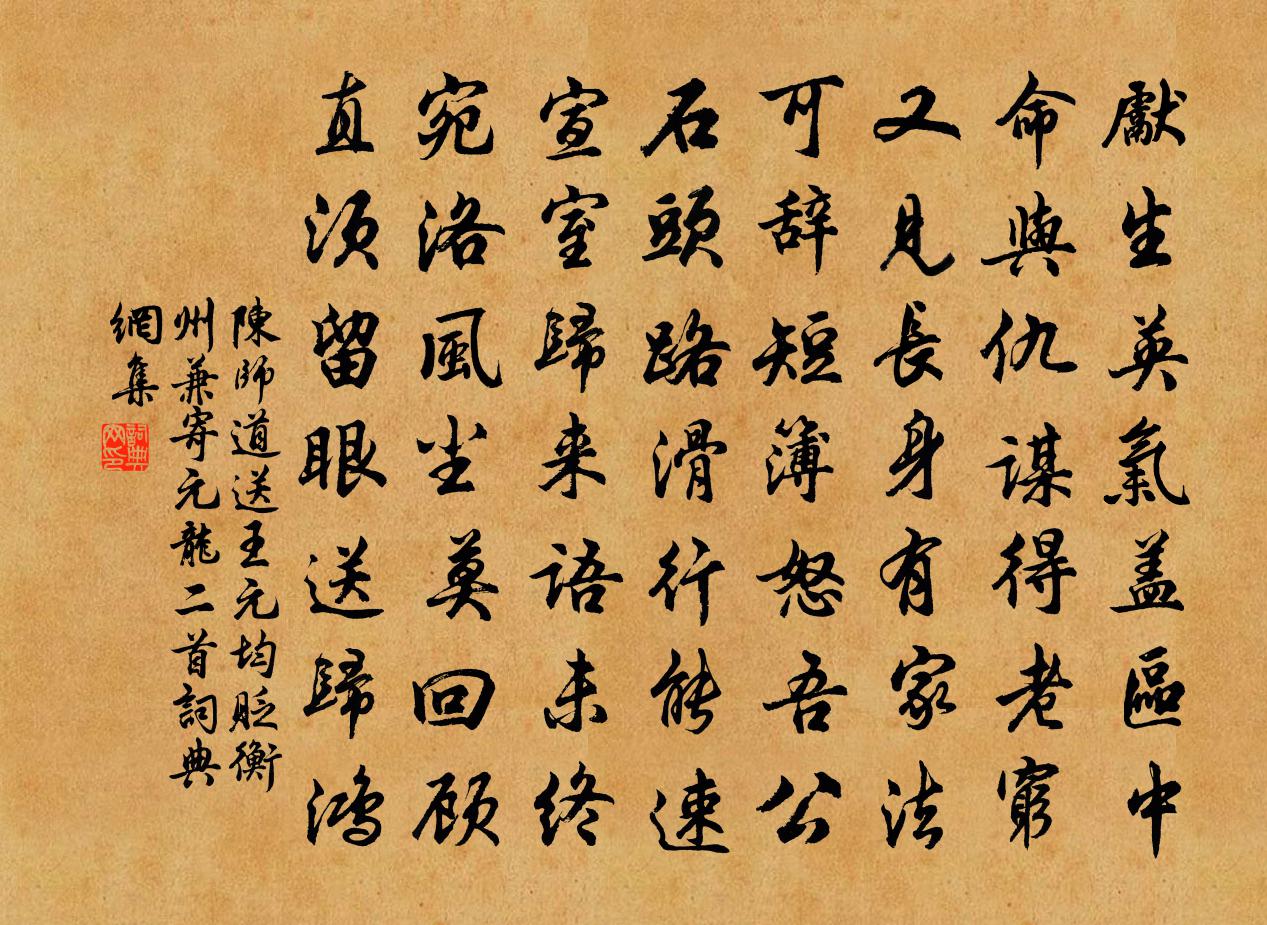 獻生英氣蓋區中
命與仇謀得老窮
又見長身有家法
可辞短簿怒吾公
石頭路滑行能速
宣室歸来語未終
宛洛風尘莫回顾
直須留眼送歸鸿
陳師道送王元均貶衡
州兼寄元龍二首詞典
網集
詞典
网印